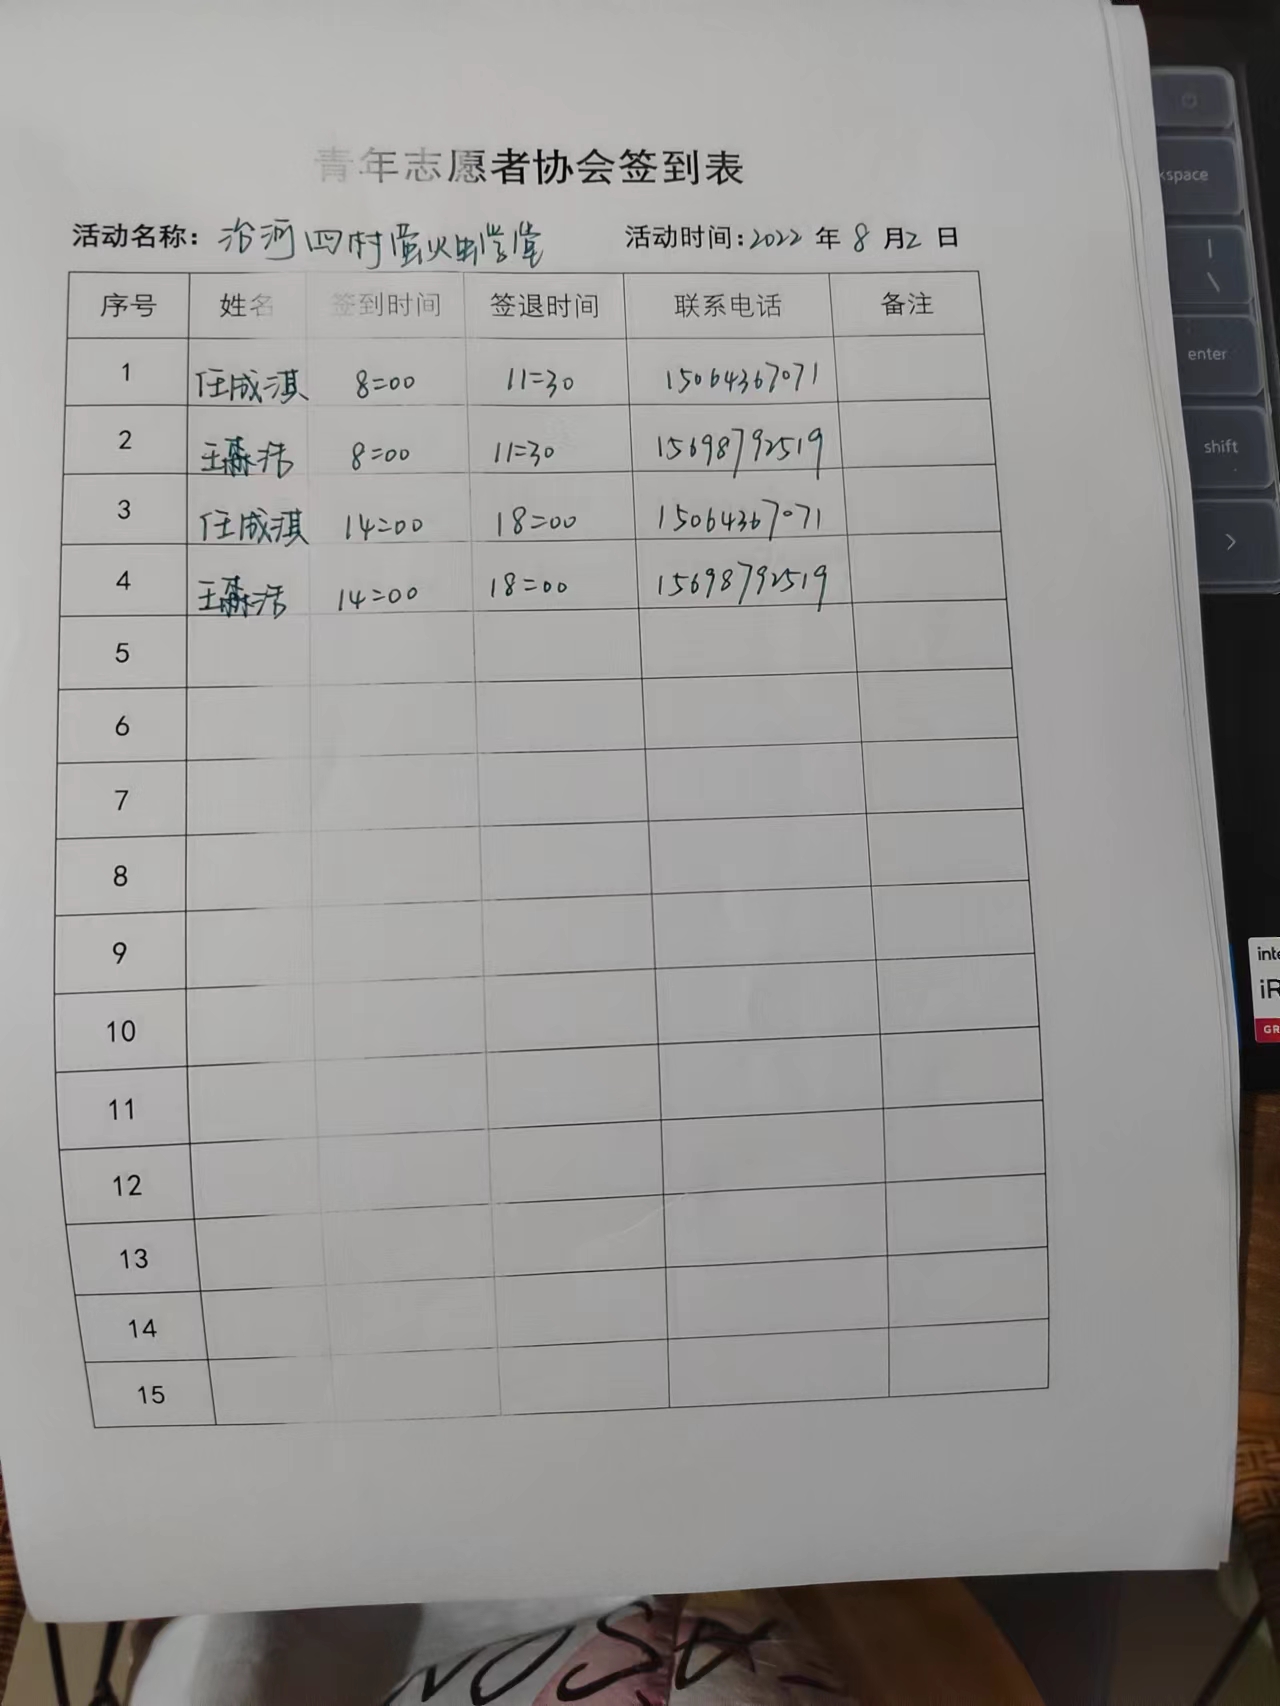 青年志愿者协会签到表
活动名称：治河四村萤火虫学堂 活动时间:2022 年 8 月2 日
序号 姓名 签到时间 签退时间 联系电话 备注
1 任成淇 8:00 11:30 15064367071
2 王森浩 8:00 11:30 15698792519
3 任成淇 14:00 18:00 15064367071
4 王森浩 14:00 18:00 15698792519
5
6
7
8
9
10
11
12
13
14
15
space
|
\
enter
shift
>
inte
iR
GR